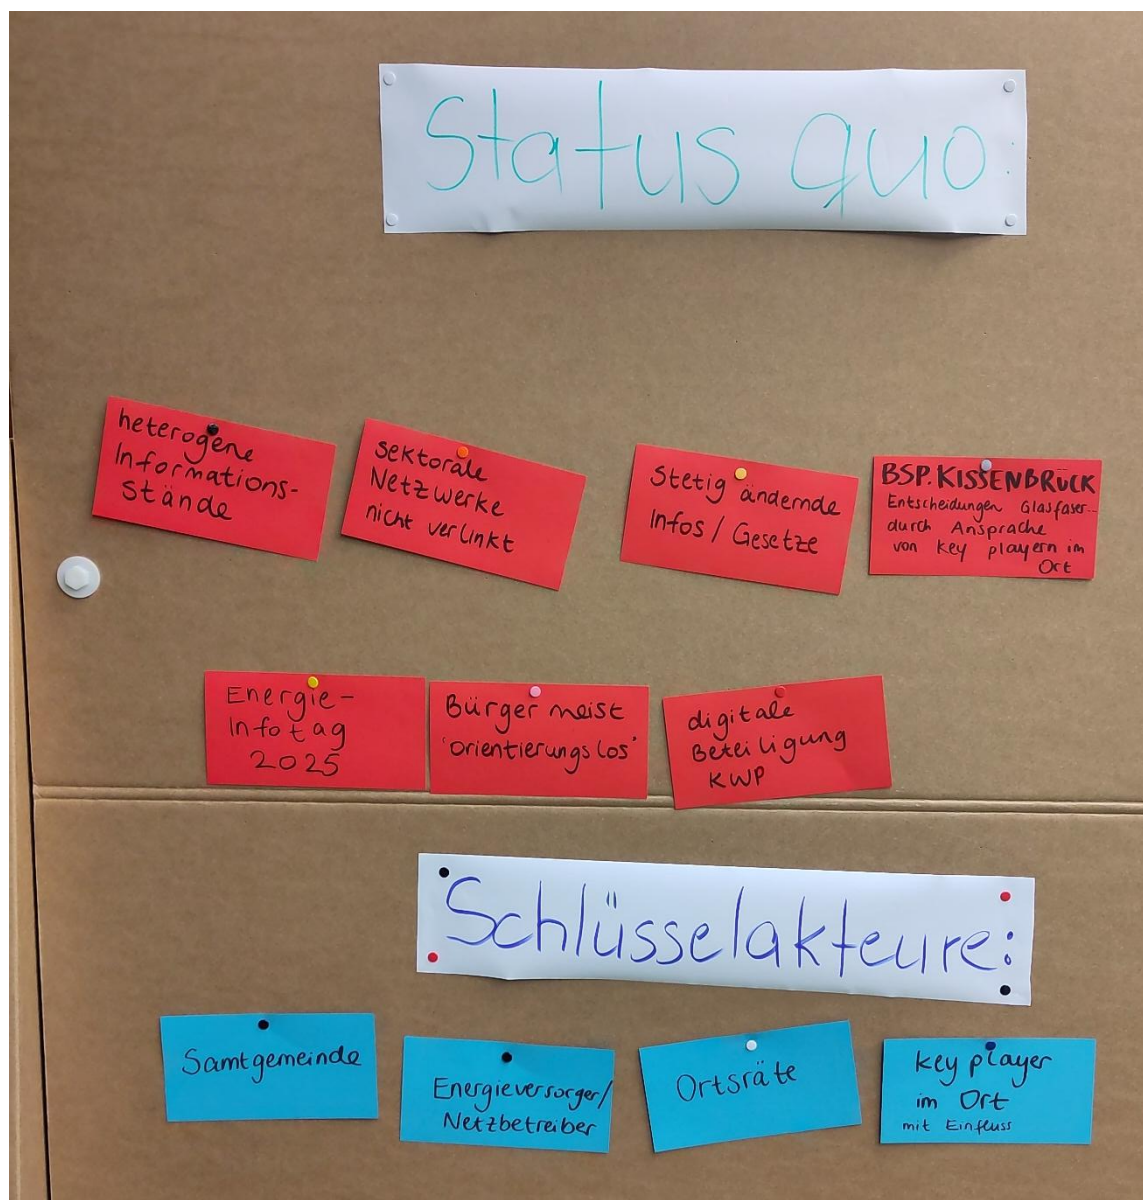 Status quo:
heterogene
Informations-
stände
sektorale
Netzwerke
nicht verlinkt
Stetig ändernde
Infos / Gesetze
BSP. KISSENBRÜCK
Entscheidungen Glasfaser...
durch Ansprache
von key playern im
Ort
Energie-
Infotag
2025
Bürger meist
'orientierungslos'
digitale
Beteiligung
KWP
Schlüsselakteure:
Samtgemeinde
Energieversorger/
Netzbetreiber
Ortsräte
key player
im Ort
mit Einfluss